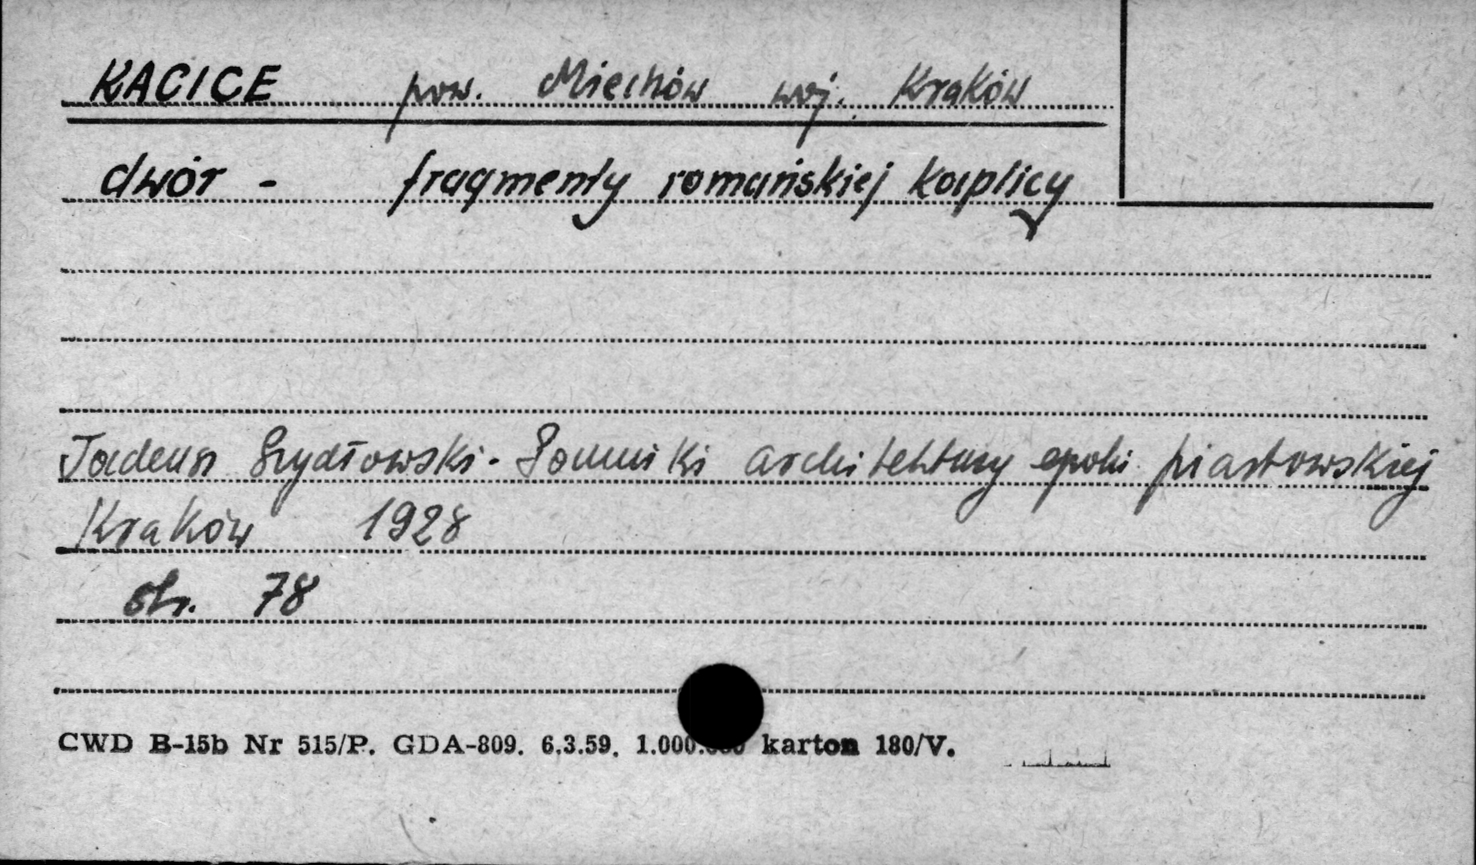 KACICE pow. Miechów woj. Kraków
dwór - fragmenty romańskiej kaplicy
Tadeusz Szydłowski - Pomniki architektury epoki piastowskiej
Kraków 1928
str. 78
CWD B-15b Nr 515/P. GDA-809. 6.3.59. 1.000.000 karton 180/V.